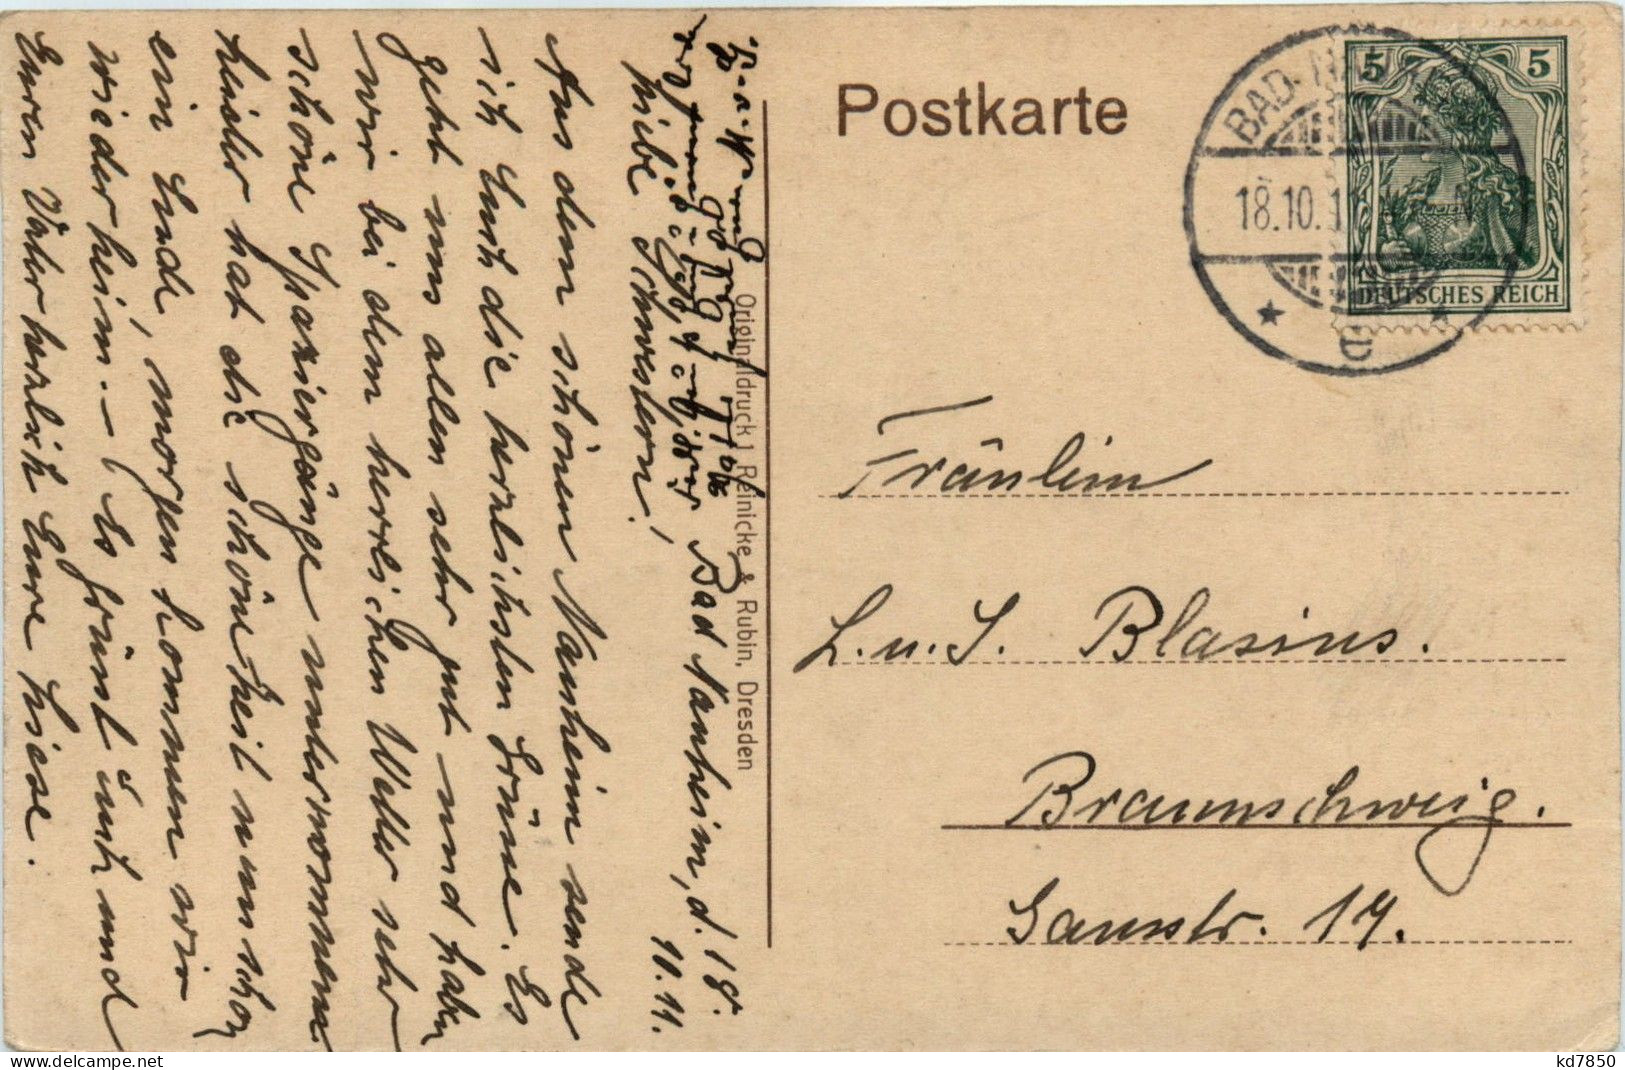 Postkarte
BAD-NAUHEIM
18.10.1
D
5 5
DEUTSCHES REICH
Fräulein
L. u. S. Blasius.
Braunschweig.
Gausstr. 17.
Originaldruck 1 Reinicke & Rubin, Dresden
Bad Nauheim, d. 18.
10. 11.
Liebe Schwestern!
Aus dem schönen Nauheim sende
ich Euch die herzlichsten Grüsse. Es
geht uns allen sehr gut und haben
wir bei dem herrlichen Wetter sehr
schöne Spaziergänge unternommen
leider hat die schöne Zeit nun schon
ein Ende, morgen kommen wir
wieder heim. – Es grüsst Euch und
Euren Vater herzlich Eure Liese.
delcampe.net
kd7850